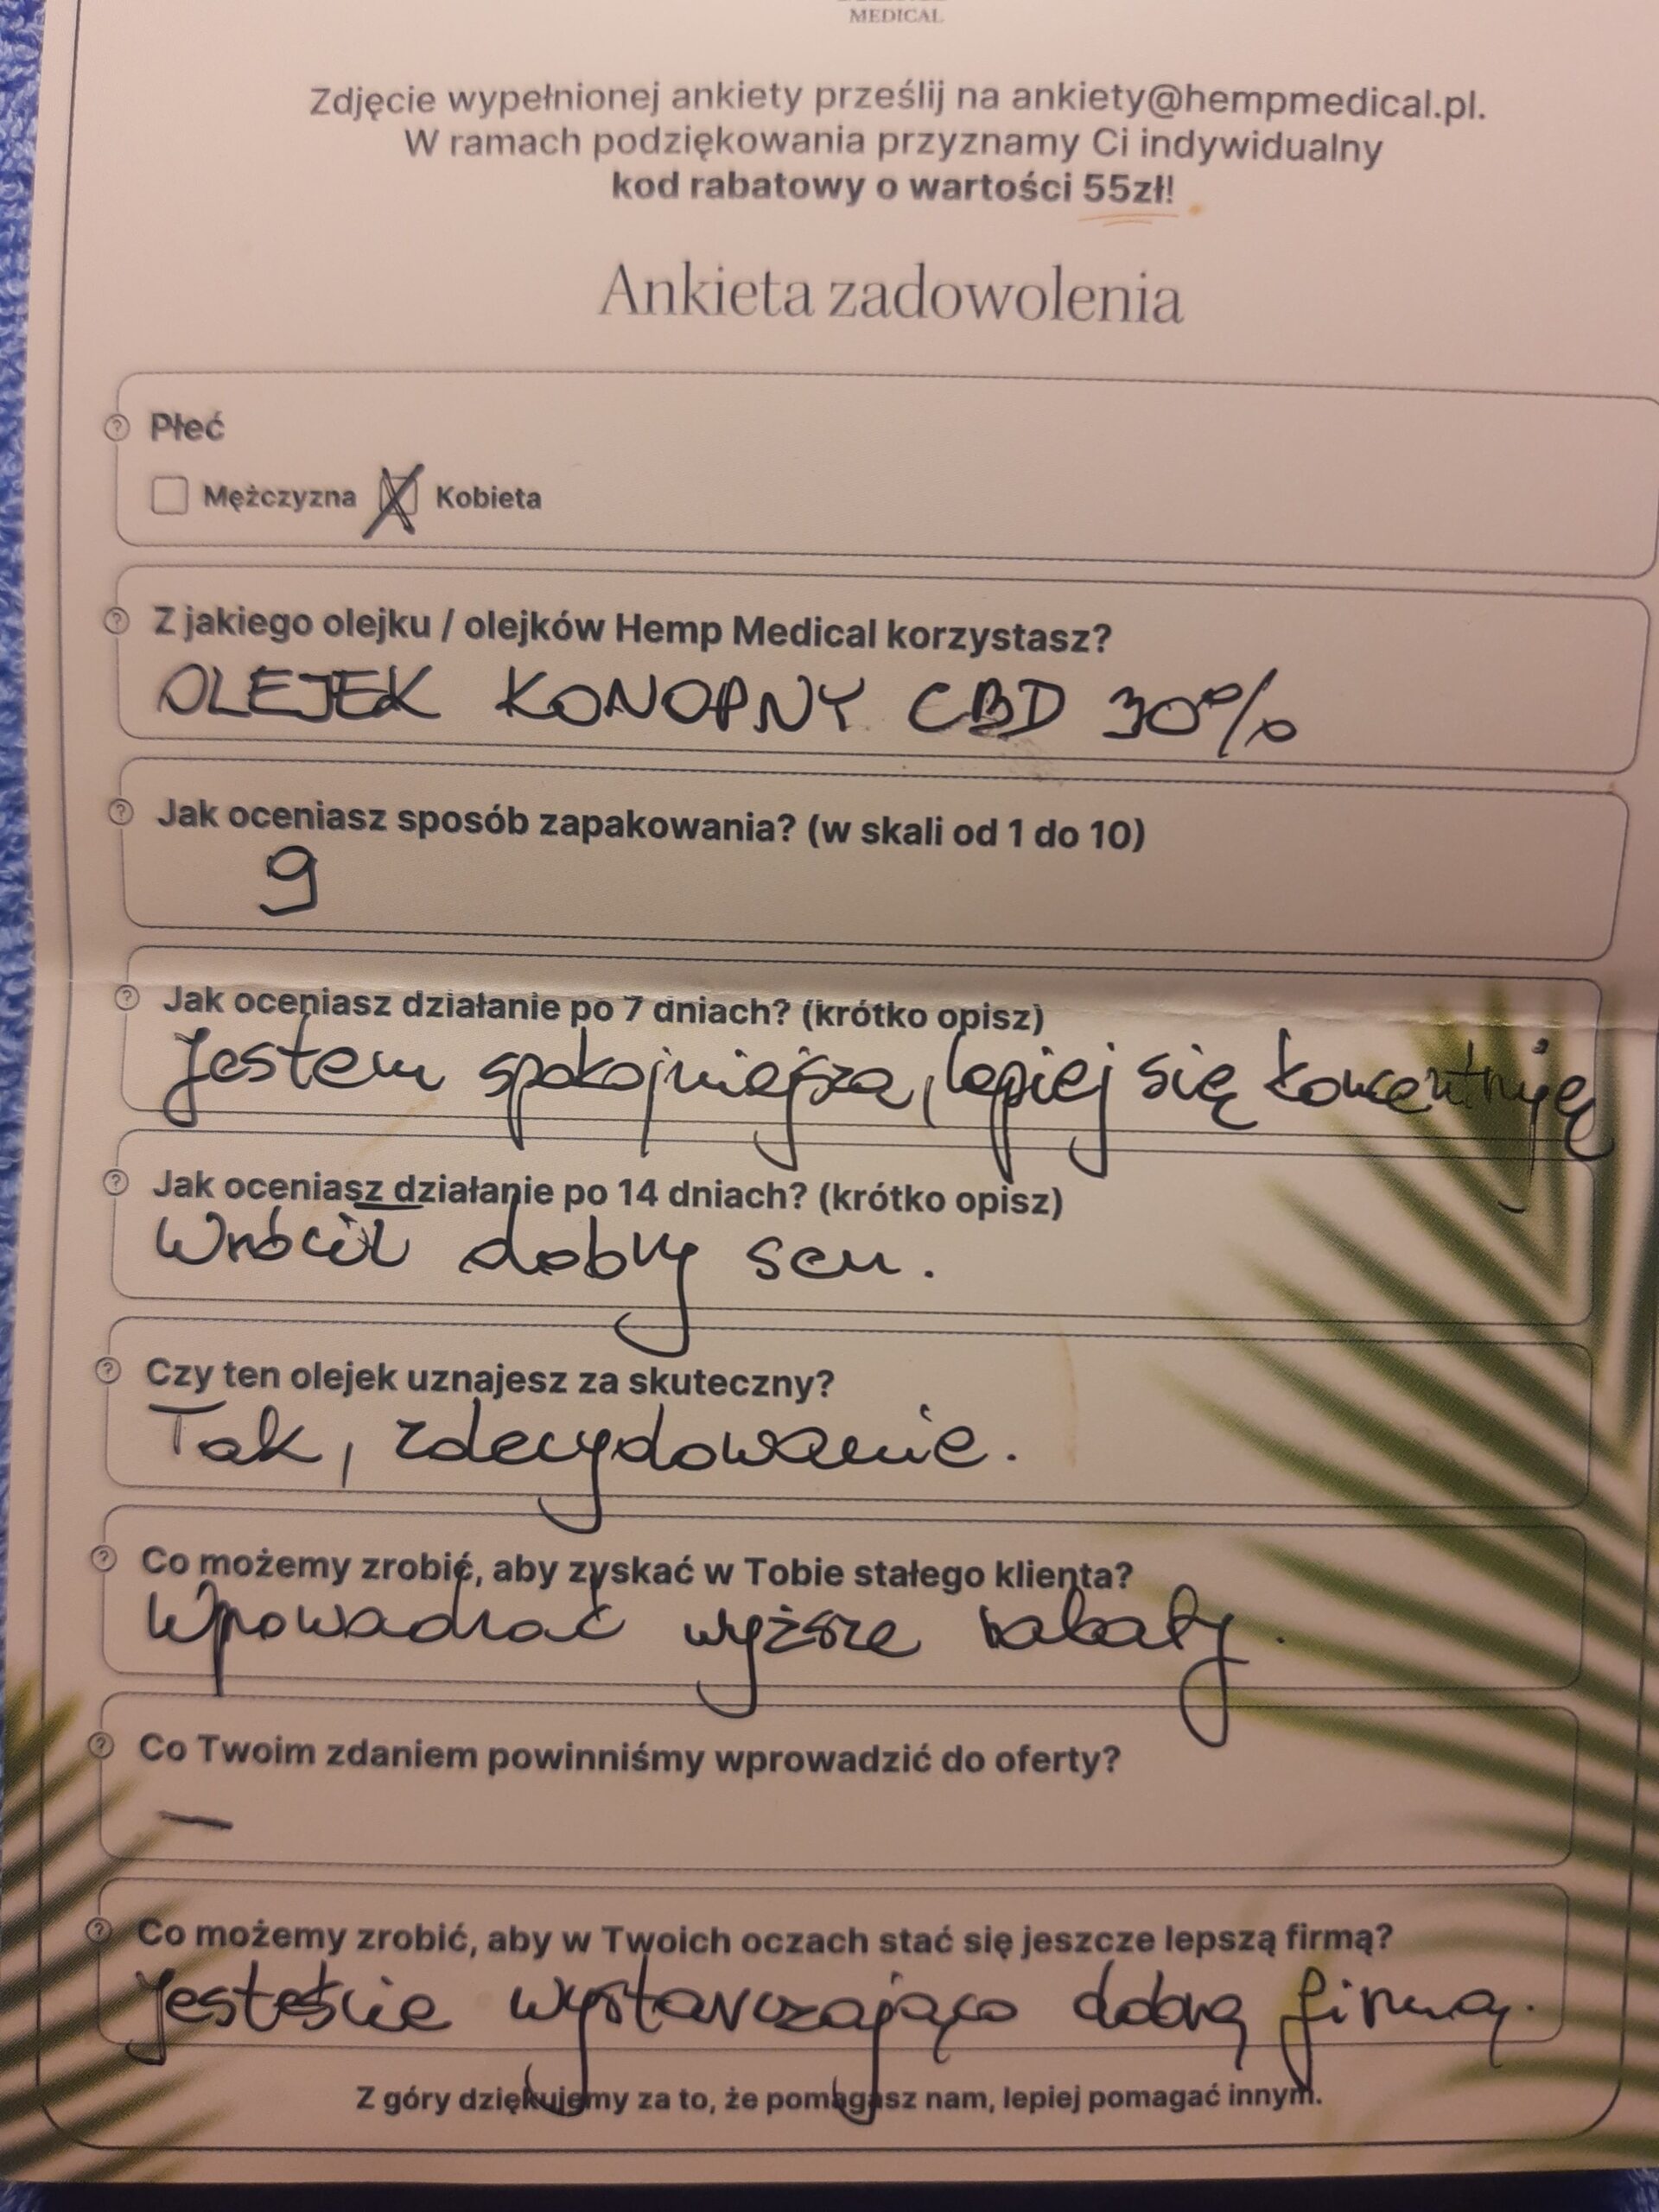 MEDICAL
Zdjęcie wypełnionej ankiety prześlij na ankiety@hempmedical.pl.
W ramach podziękowania przyznamy Ci indywidualny
kod rabatowy o wartości 55zł!
Ankieta zadowolenia
Płeć
Mężczyzna Kobieta
Z jakiego olejku / olejków Hemp Medical korzystasz?
OLEJEK KONOPNY CBD 30%
Jak oceniasz sposób zapakowania? (w skali od 1 do 10)
9
Jak oceniasz działanie po 7 dniach? (krótko opisz)
Jestem spokojniejsza, lepiej się koncentruję
Jak oceniasz działanie po 14 dniach? (krótko opisz)
Wrócił dobry sen.
Czy ten olejek uznajesz za skuteczny?
Tak, zdecydowanie.
Co możemy zrobić, aby zyskać w Tobie stałego klienta?
Wprowadzać wyższe rabaty.
Co Twoim zdaniem powinniśmy wprowadzić do oferty?
—
Co możemy zrobić, aby w Twoich oczach stać się jeszcze lepszą firmą?
Jesteście wystarczająco dobrą firmą.
Z góry dziękujemy za to, że pomagasz nam, lepiej pomagać innym.